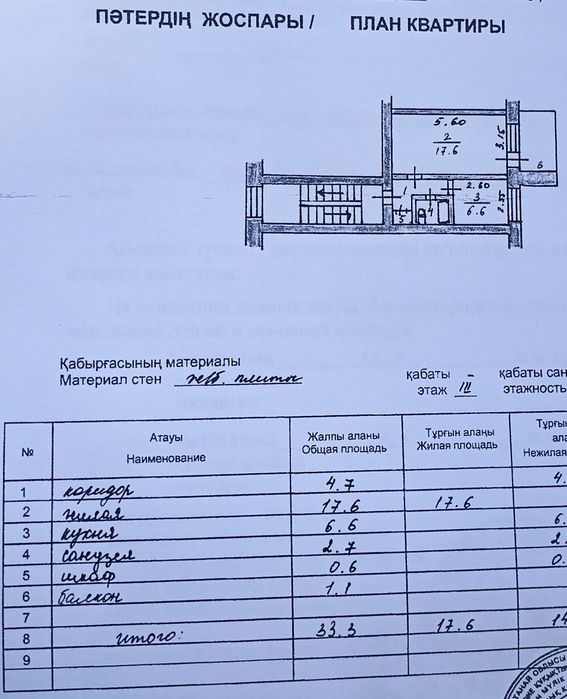 ПӘТЕРДІҢ ЖОСПАРЫ / ПЛАН КВАРТИРЫ
5.60
2
17.6
3.15
6
1
2.60
3
6.6
2.55
4
5
Қабырғасының материалы
Материал стен ж/б. плиты
қабаты этаж III
қабаты сан
этажность
№ Атауы Наименование Жалпы аланы Общая площадь Тұрғын алаңы Жилая площадь Тұрғы ала Нежилая
1 коридор 4.7 4.
2 жилая 17.6 17.6
3 кухня 6.6 6.
4 санузел 2.7 2.
5 шкаф 0.6 0.
6 балкон 1.1
7
8 итого: 33.3 17.6 14
9